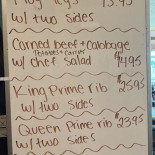 w/ two sides
Corned beef + Cabbage
Potatoes + Carrots
w/ chef Salad $14.95
King Prime rib $25.95
w/ two sides
Queen Prime rib $23.95
w/ two sides